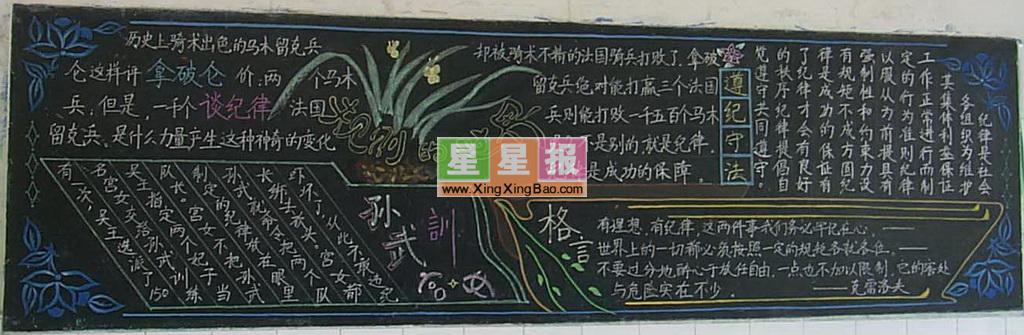 历史上骑术出色的马木留克兵
却被骑术不精的法国骑兵打败了,拿破
仑这样评拿破仑价:两个马木
留克兵绝对能打赢三个法国
兵,但是,一千个谈纪律法国
兵则能打败一千五百个马木
留克兵。是什么力量产生这种神奇的变化
是别的就是纪律,
是成功的保障
遵
纪
守
法
纪律是社会
各组织为维护
其集体利益保证
工作正常进行而制
定的行为准则纪律
以服从为前提具有
强制性和约束力没
有规矩不成方圆纪
律是成功的保证有
了纪律才会有良好
的秩序纪律要我们自
觉遵守共同遵守
星星报
www.XingXingBao.com
孙武训
有一次,吴王选派了150
名宫女交给孙武训练
吴王指定两个妃子当
队长。宫女不把孙武
制定的纪律放在眼里
孙武就命令把两个队
长绑出砍头。宫女都
吓坏了,从此不敢违纪
格言
有理想,有纪律,这两件事我们务必牢记在心。——
世界上的一切都必须按照一定的规矩各就各位。——
不要过分地醉心于放任自由,一点也不加以限制,它的害处
与危险实在不少。——克雷洛夫